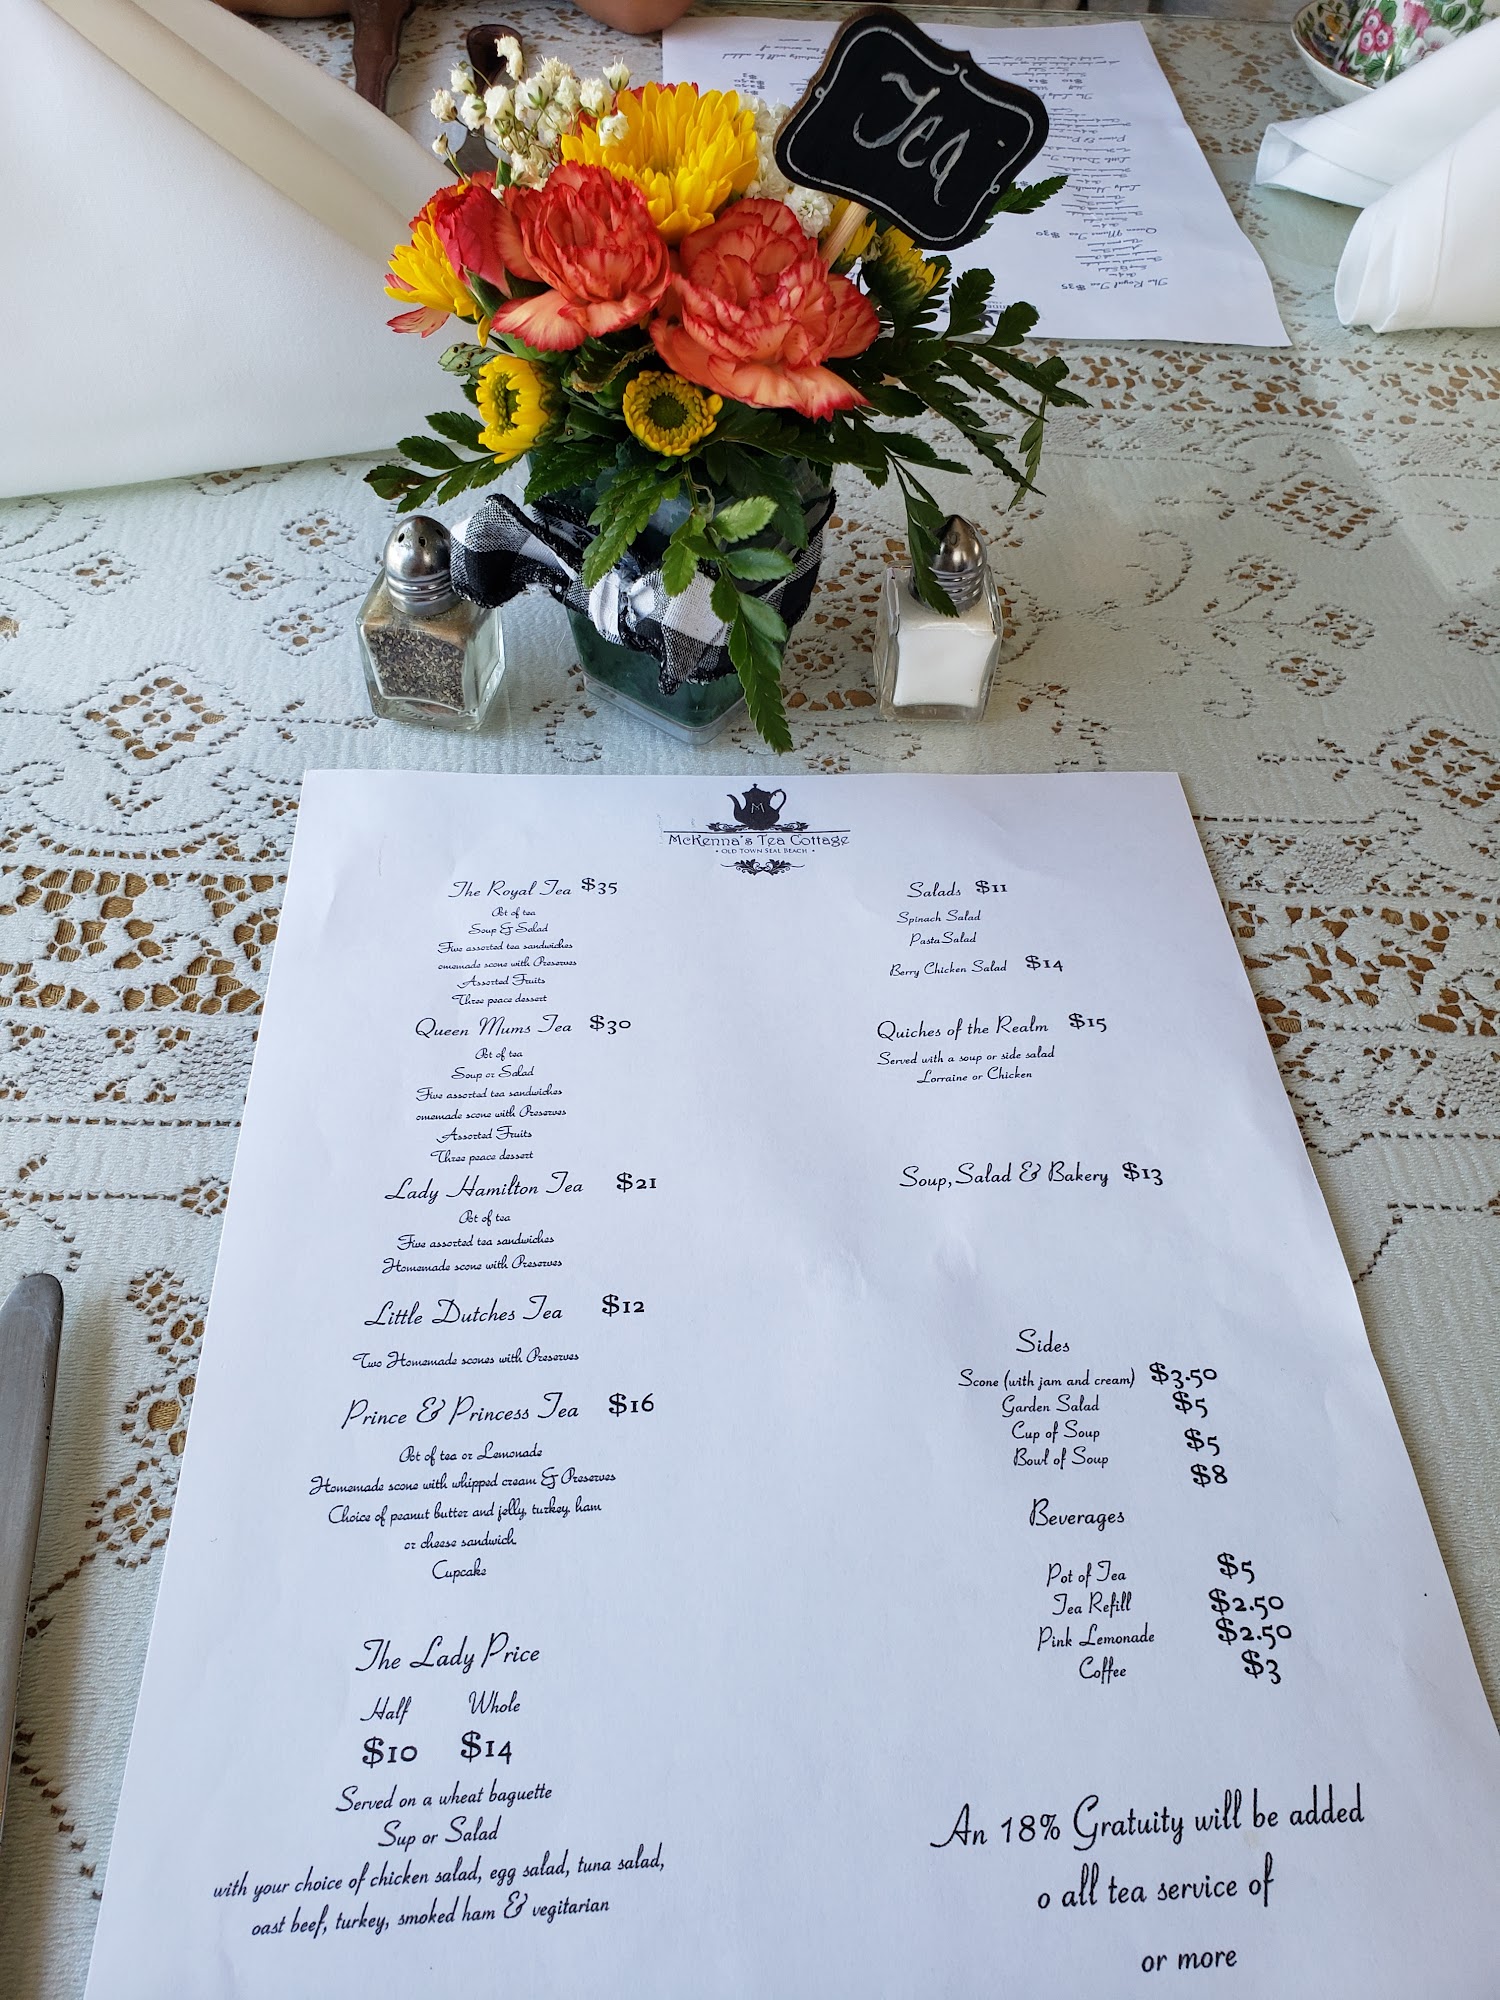 Tea
M
McKenna's Tea Cottage
• Old Town Seal Beach •
The Royal Tea $35
Pot of tea
Soup & Salad
Five assorted tea sandwiches
omemade scone with Preserves
Assorted Fruits
Three peace dessert
Queen Mums Tea $30
Pot of tea
Soup or Salad
Five assorted tea sandwiches
omemade scone with Preserves
Assorted Fruits
Three peace dessert
Lady Hamilton Tea $21
Pot of tea
Five assorted tea sandwiches
Homemade scone with Preserves
Little Dutches Tea $12
Two Homemade scones with Preserves
Prince & Princess Tea $16
Pot of tea or Lemonade
Homemade scone with whipped cream & Preserves
Choice of peanut butter and jelly, turkey, ham
or cheese sandwich
Cupcake
The Lady Price
Half Whole
$10 $14
Served on a wheat baguette
Sup or Salad
with your choice of chicken salad, egg salad, tuna salad,
oast beef, turkey, smoked ham & vegitarian
Salads $11
Spinach Salad
Pasta Salad
Berry Chicken Salad $14
Quiches of the Realm $15
Served with a soup or side salad
Lorraine or Chicken
Soup, Salad & Bakery $13
Sides
Scone (with jam and cream) $3.50
Garden Salad $5
Cup of Soup $5
Bowl of Soup $8
Beverages
Pot of Tea $5
Tea Refill $2.50
Pink Lemonade $2.50
Coffee $3
An 18% Gratuity will be added
o all tea service of
or more
The Royal Tea $35
Queen Mums Tea $30